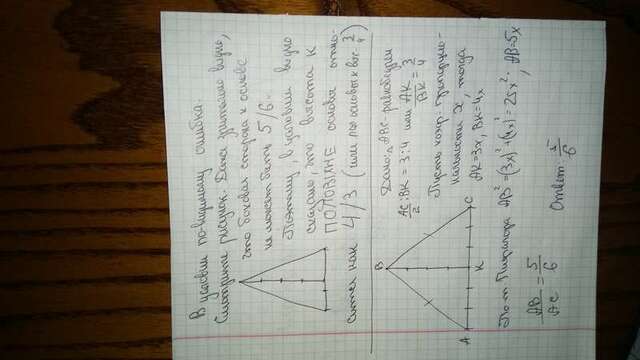 В условии по-видимому ошибка.
Смотрите рисунок. Даже зрительно видно,
что боковая сторона к основе
не может быть 5/6.
Поэтому, в условии видно
сказано, что высота к
ПОЛОВИНЕ основы относится
как 4/3 (или пол основы к выс. 3/4)
Дано: △ABC-равнобедрен
AC/2 : BK = 3:4 или AK/BK = 3/4
Пусть коэф. пропорцио-
нальности x, тогда
AK=3x, BK=4x
B
A K C
По т. Пифагора AB²=(3x)²+(4x)²=25x², AB=5x
AB/AC = 5/6
Ответ: 5/6